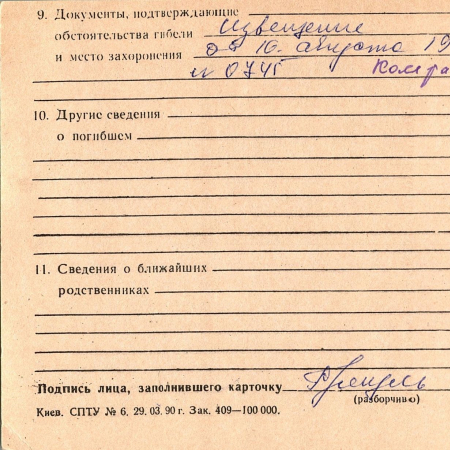 9. Документы, подтверждающие
обстоятельства гибели Извещение
и место захоронения от 10. августа 19
№ 0745
10. Другие сведения
о погибшем
11. Сведения о ближайших
родственниках
Подпись лица, заполнившего карточку
(разборчиво)
Киев. СПТУ № 6. 29. 03. 90 г. Зак. 409—100 000.